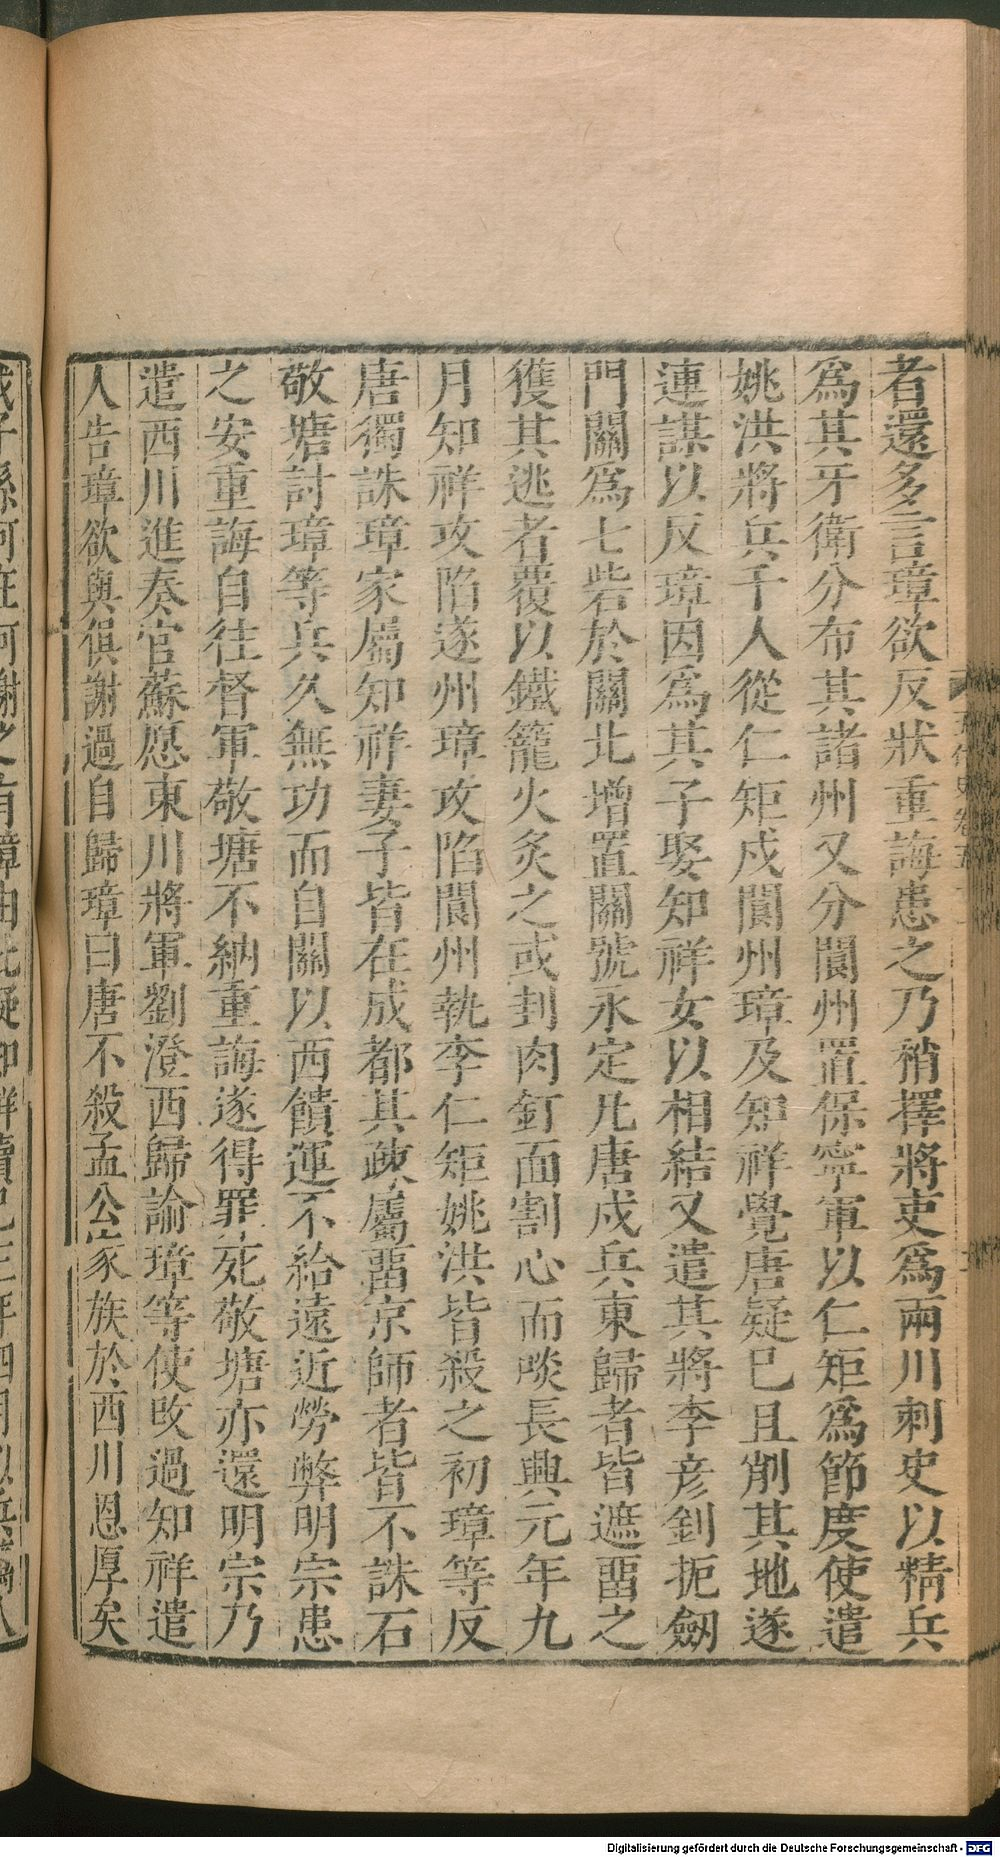 者還多言璋欲反狀重誨患之乃稍擇將吏爲兩川刺史以精兵
爲其牙衛分布其諸州又分閬州置保寧軍以仁矩爲節度使遣
姚洪將兵千人從仁矩戍閬州璋及知祥覺唐疑已且削其地遂
連謀以反璋因爲其子娶知祥女以相結又遣其將李彥釗扼劔
門關爲七砦於關北增置關號永定凡唐戍兵東歸者皆遮畱之
獲其逃者覆以鐵籠火炙之或刲肉釘面割心而啖長興元年九
月知祥攻陷遂州璋攻陷閬州執李仁矩姚洪皆殺之初璋等反
唐獨誅璋家屬知祥妻子皆在成都其疎屬畱京師者皆不誅石
敬塘討璋等兵久無功而自關以西饋運不給遠近勞弊明宗患
之安重誨自往督軍敬塘不納重誨遂得罪死敬塘亦還明宗乃
遣西川進奏官蘇愿東川將軍劉澄西歸諭璋等使改過知祥遣
人告璋欲與俱謝過自歸璋曰唐不殺孟公家族於西川恩厚矣
Digitalisierung gefördert durch die Deutsche Forschungsgemeinschaft - DFG